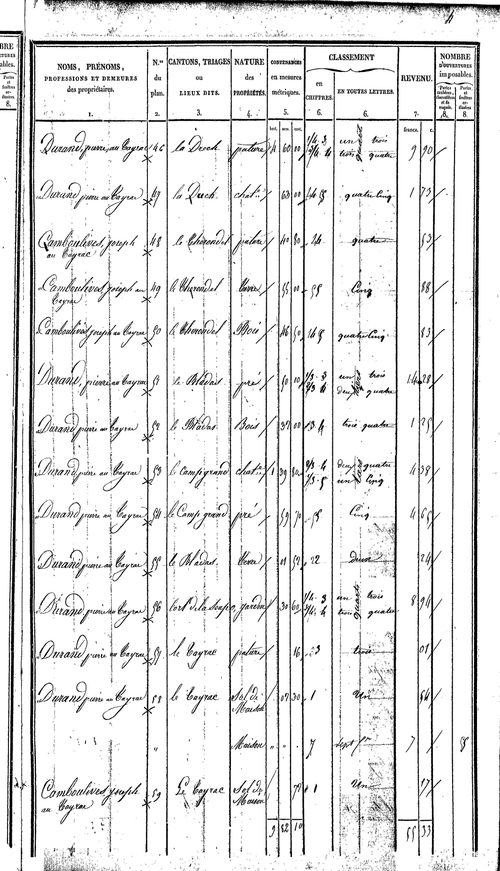 NOMS, PRÉNOMS, PROFESSIONS ET DEMEURES des propriétaires. 1. | N.os du plan. 2. | CANTONS, TRIAGES ou LIEUX DITS. 3. | NATURE des PROPRIÉTÉS. 4. | CONTENANCES en mesures métriques. 5. | CLASSEMENT en CHIFFRES. 6. | EN TOUTES LETTRES. 6. | REVENU. 7. | NOMBRE D'OUVERTURES imposables. 8. 8.
Durand, pierre, au Cayrac 46 la Devch pature 4 60 00 1/4. 3 3/4. 4 un trois quarts quatre 9 90
Durand pierre au Cayrac 47 la Devch chatie 63 00 4 5 quatre cinq 1 73
Camboulives, joseph au Cayrac 48 le Therondet pature 40 80 4 quatre 53
Camboulives joseph au Cayrac 49 le Therondet 55 00 5 Cinq 88
Camboulives joseph au Cayrac 50 le Therondet Bois 46 50 4 5 quatre cinq 83
Durand, pierre au Cayrac 51 le Bladas pré 50 00 1/3. 3 2/3. 4 un trois deux tiers quatre 14 28
Durand pierre au Cayrac 52 le Bladas Bois 37 00 3 4 trois quatre 1 25
Durand pierre au Cayrac 53 le Camp grand chatie 1 39 2/3. 4 1/3. 5 deux quatre un tiers Cinq 4 38
Durand pierre au Cayrac 54 le Camp grand pré 59 70 5 Cinq 4 65
Durand pierre au Cayrac 55 le Bladas 01 52 2 deux 24
Durand pierre au Cayrac 56 l'ort de la soupe jardin 30 60 1/4. 3 3/4. 4 un trois quarts quatre 8 94
Durand pierre au Cayrac 57 le Cayrac pature 16 3 trois 01
Durand pierre au Cayrac 58 le Cayrac Sol de Maison 07 30 1 Un
" Maison " " 7 sept 7 /
Camboulives joseph au Cayrac 59 Le Cayrac Sol de Maison 1 Un 17
9 82 10 55 33